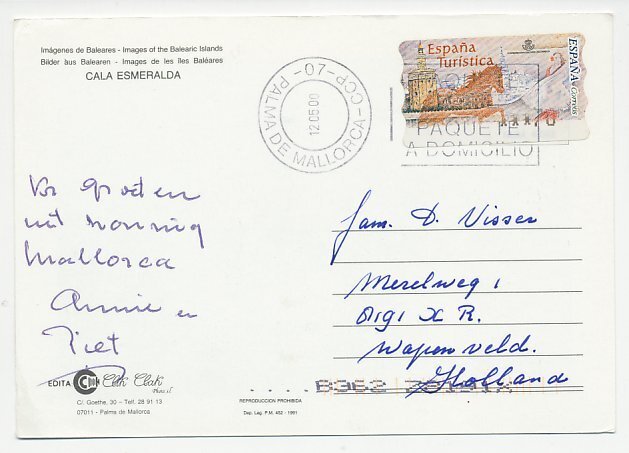 Imágenes de Baleares - Images of the Balearic Islands
Bilder aus Balearen - Images de les îles Baléares
CALA ESMERALDA
España
Turística
ESPAÑA
Correos
PALMA DE MALLORCA-CCP-07-
12.05.00
PAQUETE
A DOMICILIO
groeten
uit zonnig
Mallorca
Annie en
Piet
Fam. D. Visser
Merelweg 1
8191 XR.
Wapenveld.
Holland
EDITA Clik Clak
C/. Goethe, 30 - Telf. 28 91 13
07011 - Palma de Mallorca
REPRODUCCION PROHIBIDA
Dep. Leg. P.M. 452 - 1991